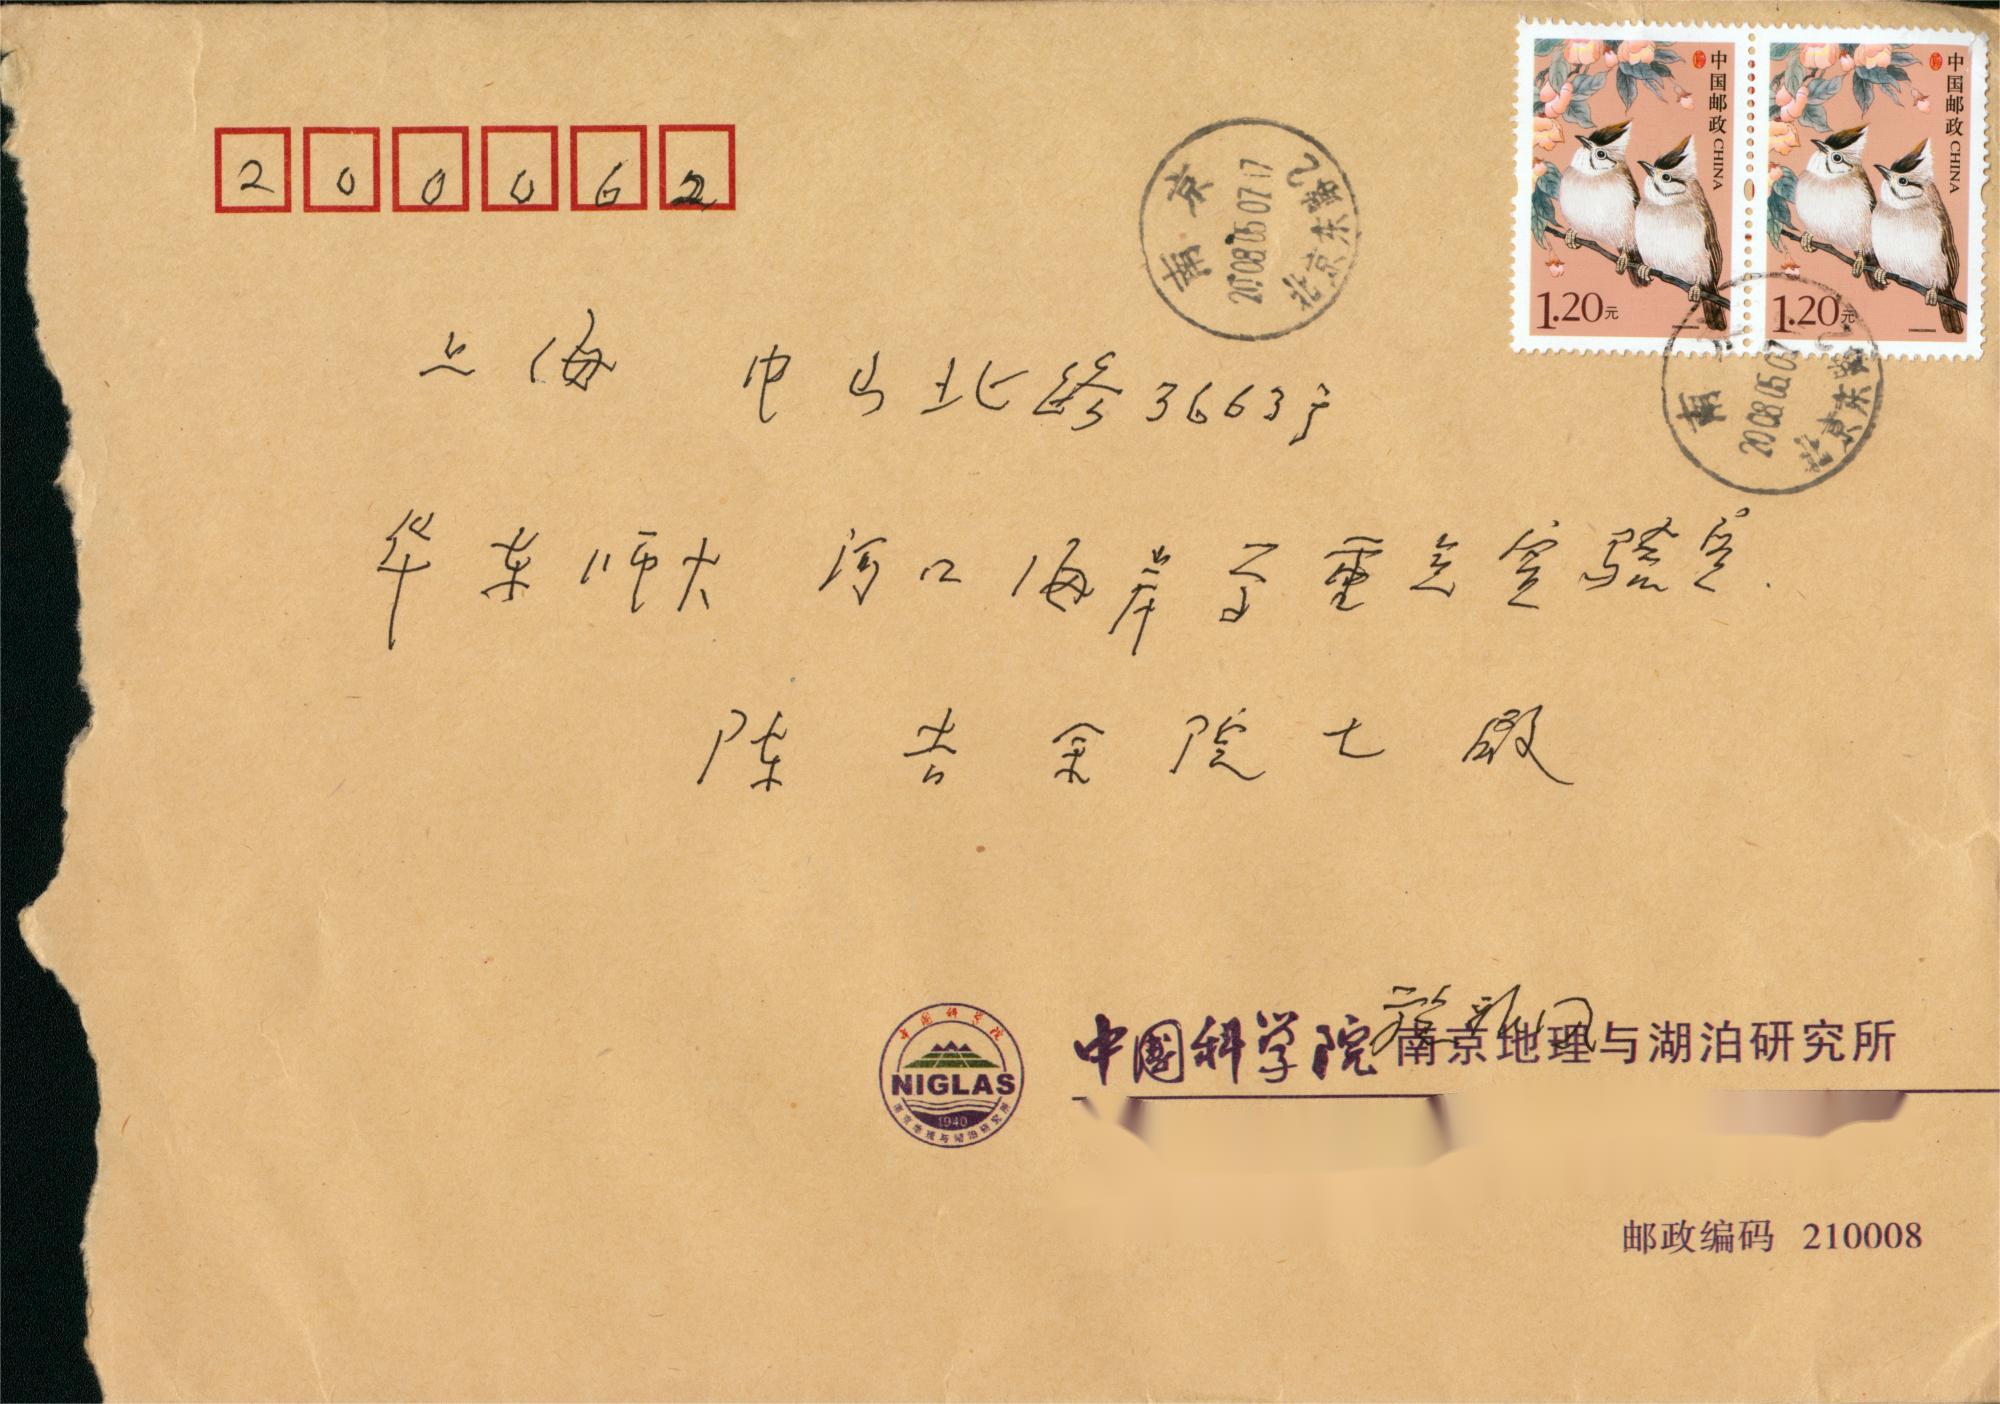 200062
中国邮政 CHINA
1.20元
中国邮政 CHINA
1.20元
南京
2008.05.07 17
北京东路
南
2008.05.07
北京东路
上海 中山北路3663号
华东师大 河口海岸学重点实验室.
陈吉余院士 启
中国科学院
NIGLAS
1940
南京地理与湖泊研究所
中国科学院南京地理与湖泊研究所
邮政编码 210008